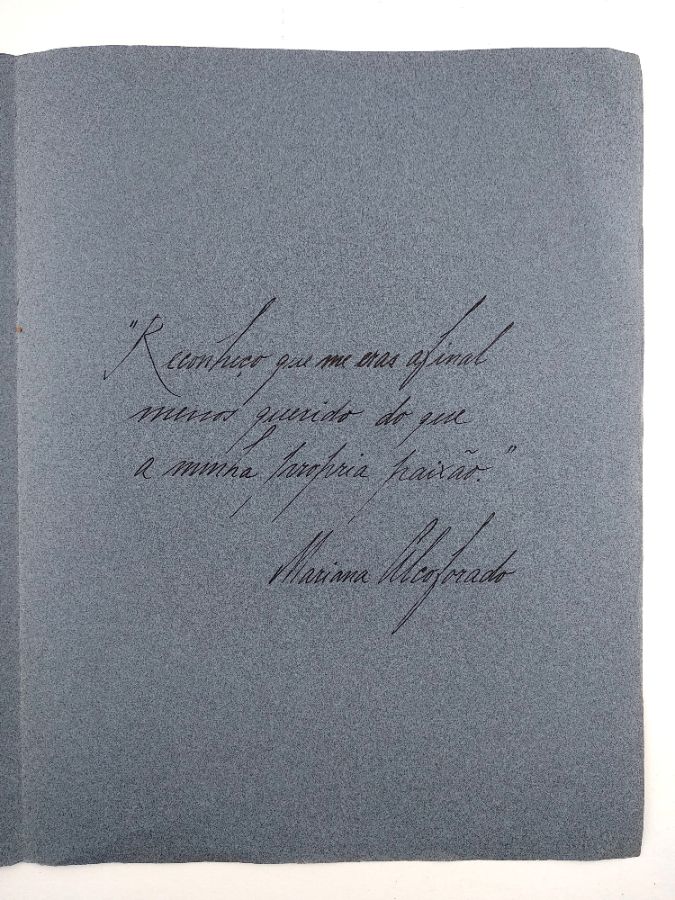 "Reconheço que me eras afinal
menos querido do que
a minha própria paixão."
Mariana Alcoforado